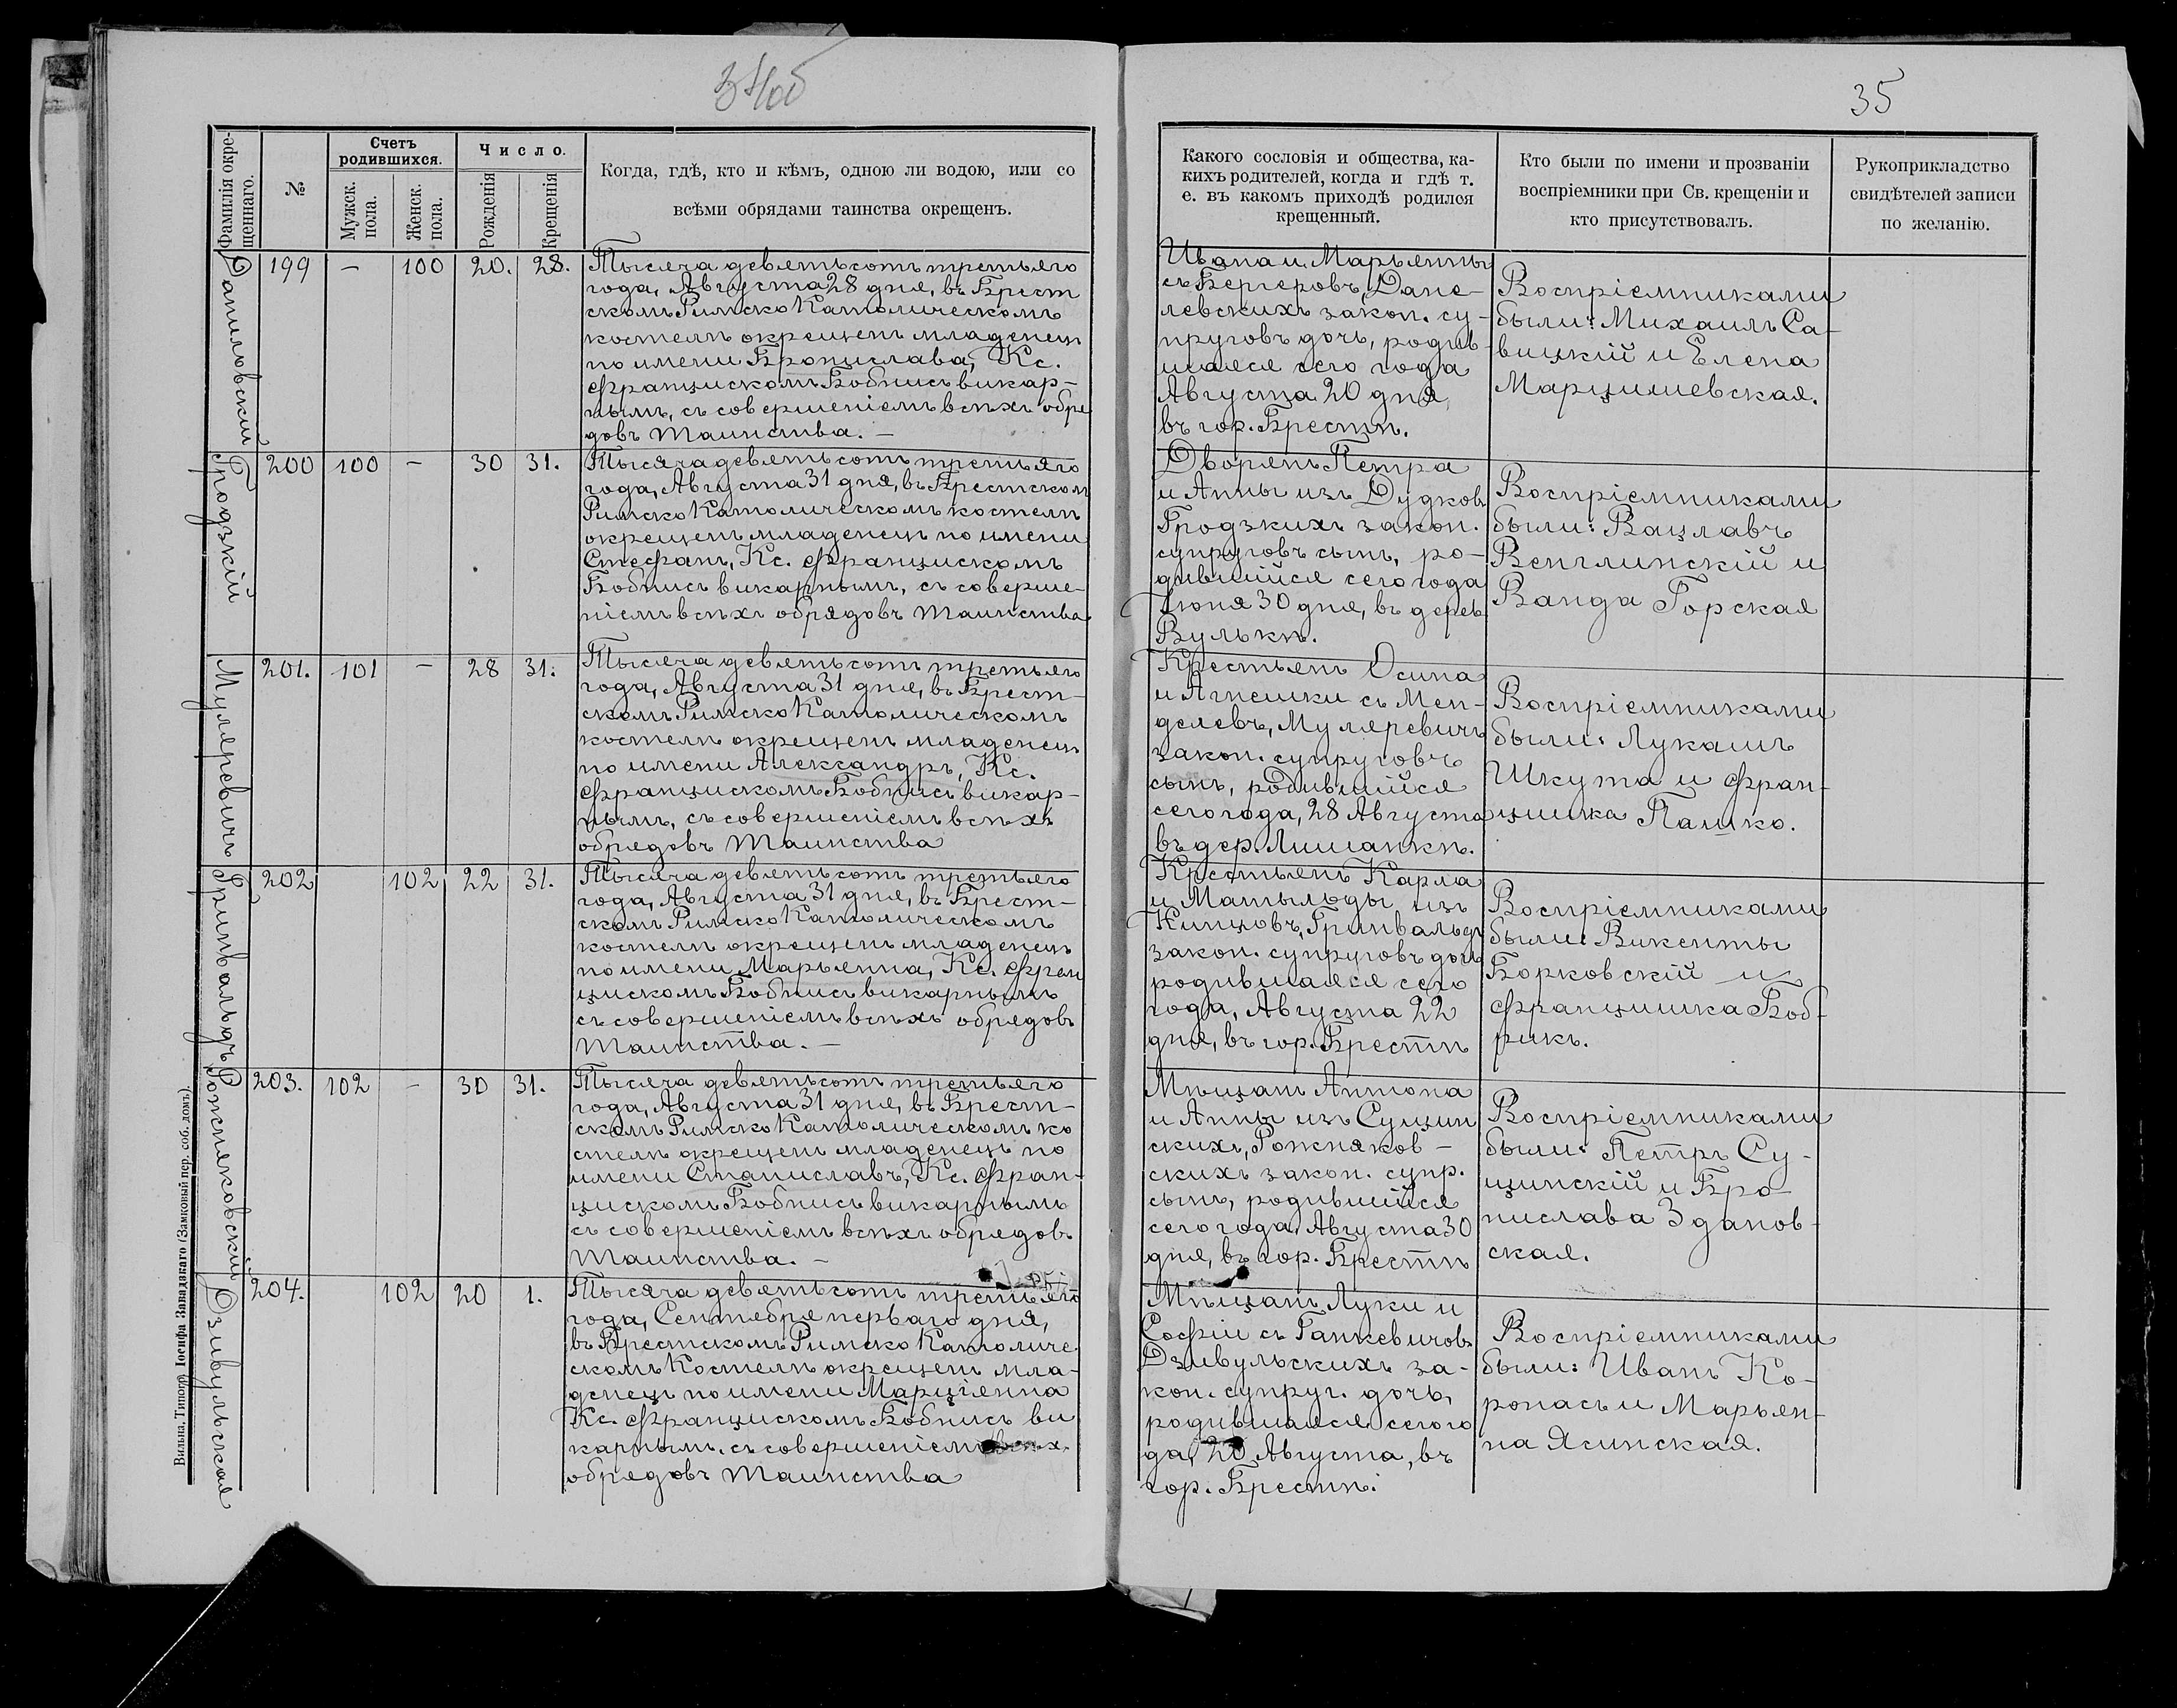 34об
35
Фамилія окре-
щеннаго.
№
Счетъ
родившихся.
Мужск.
пола.
Женск.
пола.
Число.
Рожденія
Крещенія
Когда, гдѣ, кто и кѣмъ, одною ли водою, или со
всѣми обрядами таинства окрещенъ.
Какого сословія и общества, ка-
кихъ родителей, когда и гдѣ т.
е. въ какомъ приходѣ родился
крещенный.
Кто были по имени и прозваніи
воспріемники при Св. крещеніи и
кто присутствовалъ.
Рукоприкладство
свидѣтелей записи
по желанію.
199 — 100 20. 28.
Тысяча девятьсотъ третьяго
года, Августа 28 дня, въ Брест
скомъ Римско Католическомъ
костелѣ окрещенъ младенецъ
по имени Брониславa, Кс.
Францискомъ Бобнисъ викар-
нымъ, съ совершеніемъ всѣхъ обря
довъ таинства. —
Ивана и Марьянны
съ Бергеровъ, Дани-
левскихъ закон. су-
пруговъ дочь, родив-
шаяся сего года
Августа 20 дня,
въ гор. Брестѣ.
Воспріемниками
были: Михаилъ Са-
вицкій и Елена
Марцишевская.
Гродзкій
200 100 — 30 31.
Тысяча девятьсотъ третьяго
года, Августа 31 дня, въ Брестскомъ
Римско Католическомъ костелѣ
окрещенъ младенецъ по имени
Стефанъ, Кс. Францискомъ
Бобнисъ викарнымъ, съ соверше-
ніемъ всѣхъ обрядовъ таинства.
Дворянъ Петра
и Анны изъ Дудковъ
Гродзкихъ закон.
супруговъ сынъ, ро-
дившійся сего года
Іюня 30 дня, въ дерев.
Вулькѣ.
Воспріемниками
были: Вацлавъ
Венглинскій и
Ванда Горская
Муляревичъ
201. 101 — 28 31.
Тысяча девятьсотъ третьяго
года, Августа 31 дня, въ Брест-
скомъ Римско Католическомъ
костелѣ окрещенъ младенецъ
по имени Александръ, Кс.
Францискомъ Бобнисъ викар-
нымъ, съ совершеніемъ всѣхъ
обрядовъ таинства
Крестьянъ Осипа
и Агнешки съ Мен-
делевъ, Муляревичъ
закон. супруговъ
сынъ, родившійся
сего года, 28 Августа
въ дер. Лишанкѣ.
Воспріемниками
были: Лукашъ
Шкута и Фран-
цишка Пашко.
Гринвальдъ
202 102 22 31.
Тысяча девятьсотъ третьяго
года, Августа 31 дня, въ Брест-
скомъ Римско Католическомъ
костелѣ окрещенъ младенецъ
по имени Марьянна, Кс. Фран
цискомъ Бобнисъ викарнымъ
съ совершеніемъ всѣхъ обрядовъ
таинства. —
Крестьянъ Карла
и Матыльды изъ
Кинцовъ, Гринвальдъ
закон. супруговъ дочь
родившаяся сего
года, Августа 22
дня, въ гор. Брестѣ
Воспріемниками
были: Викенты
Борковскій и
Францишка Боб-
рикъ.
Рожняковскій
203. 102 — 30 31.
Тысяча девятьсотъ третьяго
года, Августа 31 дня, въ Брест-
скомъ Римско Католическомъ ко
стелѣ окрещенъ младенецъ по
имени Станиславъ, Кс. Фран-
цискомъ Бобнисъ викарнымъ
съ совершеніемъ всѣхъ обрядовъ
таинства. —
Мѣщанъ Антона
и Анны изъ Сущин
скихъ, Рожняков-
скихъ закон. супр.
сынъ, родившійся
сего года, Августа 30
дня, въ гор. Брестѣ
Воспріемниками
были: Петръ Су-
щинскій и Бро-
нислава Зданов-
ская.
Дзивульская
204. 102 20 1.
Тысяча девятьсотъ третьяго
года, Сентября перваго дня,
въ Брестскомъ Римско Католиче
скомъ Костелѣ окрещенъ мла-
денецъ по имени Марціянна
Кс. Францискомъ Бобнисъ ви
карнымъ. съ совершеніемъ всѣхъ
обрядовъ таинства
Мѣщанъ Луки и
Софіи съ Ганкевичовъ
Дзивульскихъ за-
кон. супруг. дочь,
родившаяся сего го
да, 20 Августа, въ
гор. Брестѣ.
Воспріемниками
были: Иванъ Ко-
ронасъ и Марьян-
на Ясинская.
Вильна, Типогр. Іосифа Завадзкаго (Замковый пер. соб. домъ).